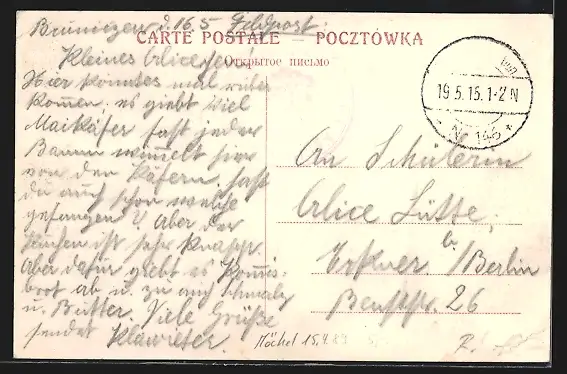 d. 16.5 Feldpost.
CARTE POSTALE — POCZTÓWKA
Открытое письмо
Kleines
Hier könntest mal rüber
kommen, es giebt viel
Maikäfer fast jeder
Baum wimmelt hier
von den Käfern, hast
du auch schon welche
gefangen? Aber der
ist sehr knapp.
Aber dafür giebt es Komis-
brot ab u. zu auch Schmalz
u. Butter. Viele Grüße
sendet
19.5.15.1-2N
N 146
An Schülerin
Alice Lütte,
Erkner b/Berlin
26
15.4